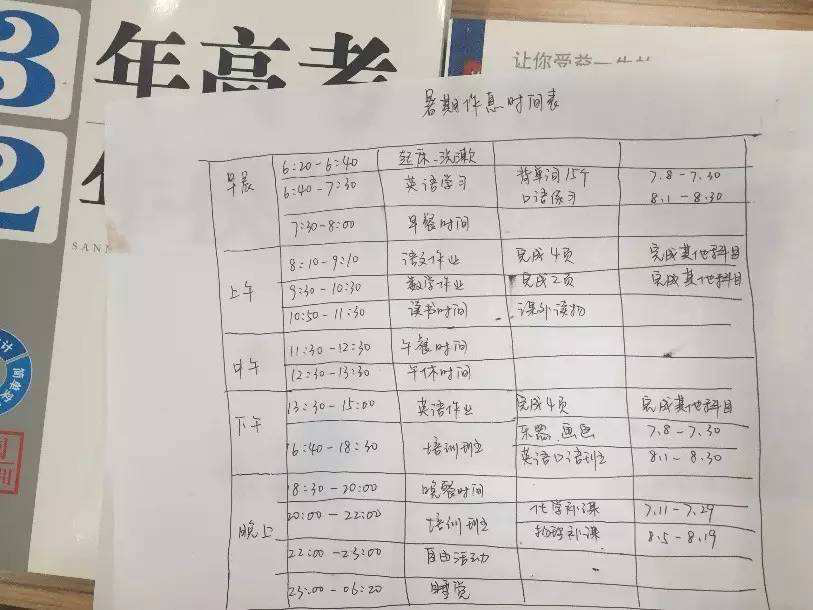 3
年高考
2
SANN
让你受益一生的
简单对
暑期作息时间表
早晨 6:20-6:40 起床、洗漱
6:40-7:30 英语学习 背单词15个 7.8-7.30
口语练习 8.1-8.30
7:30-8:00 早餐时间
上午 8:10-9:10 语文作业 完成4页 完成其他科目
9:30-10:30 数学作业 完成2页 完成其他科目
10:50-11:30 读书时间 课外读物
中午 11:30-12:30 午餐时间
12:30-13:30 午休时间
下午 13:30-15:00 英语作业 完成4页 完成其他科目
16:40-18:30 培训班 乐器、画画 7.8-7.30
英语口语班 8.1-8.30
晚上 18:30-20:00 晚餐时间
20:00-22:00 培训班 化学补课 7.11-7.29
物理补课 8.5-8.19
22:00-23:00 自由活动
23:00-06:20 睡觉